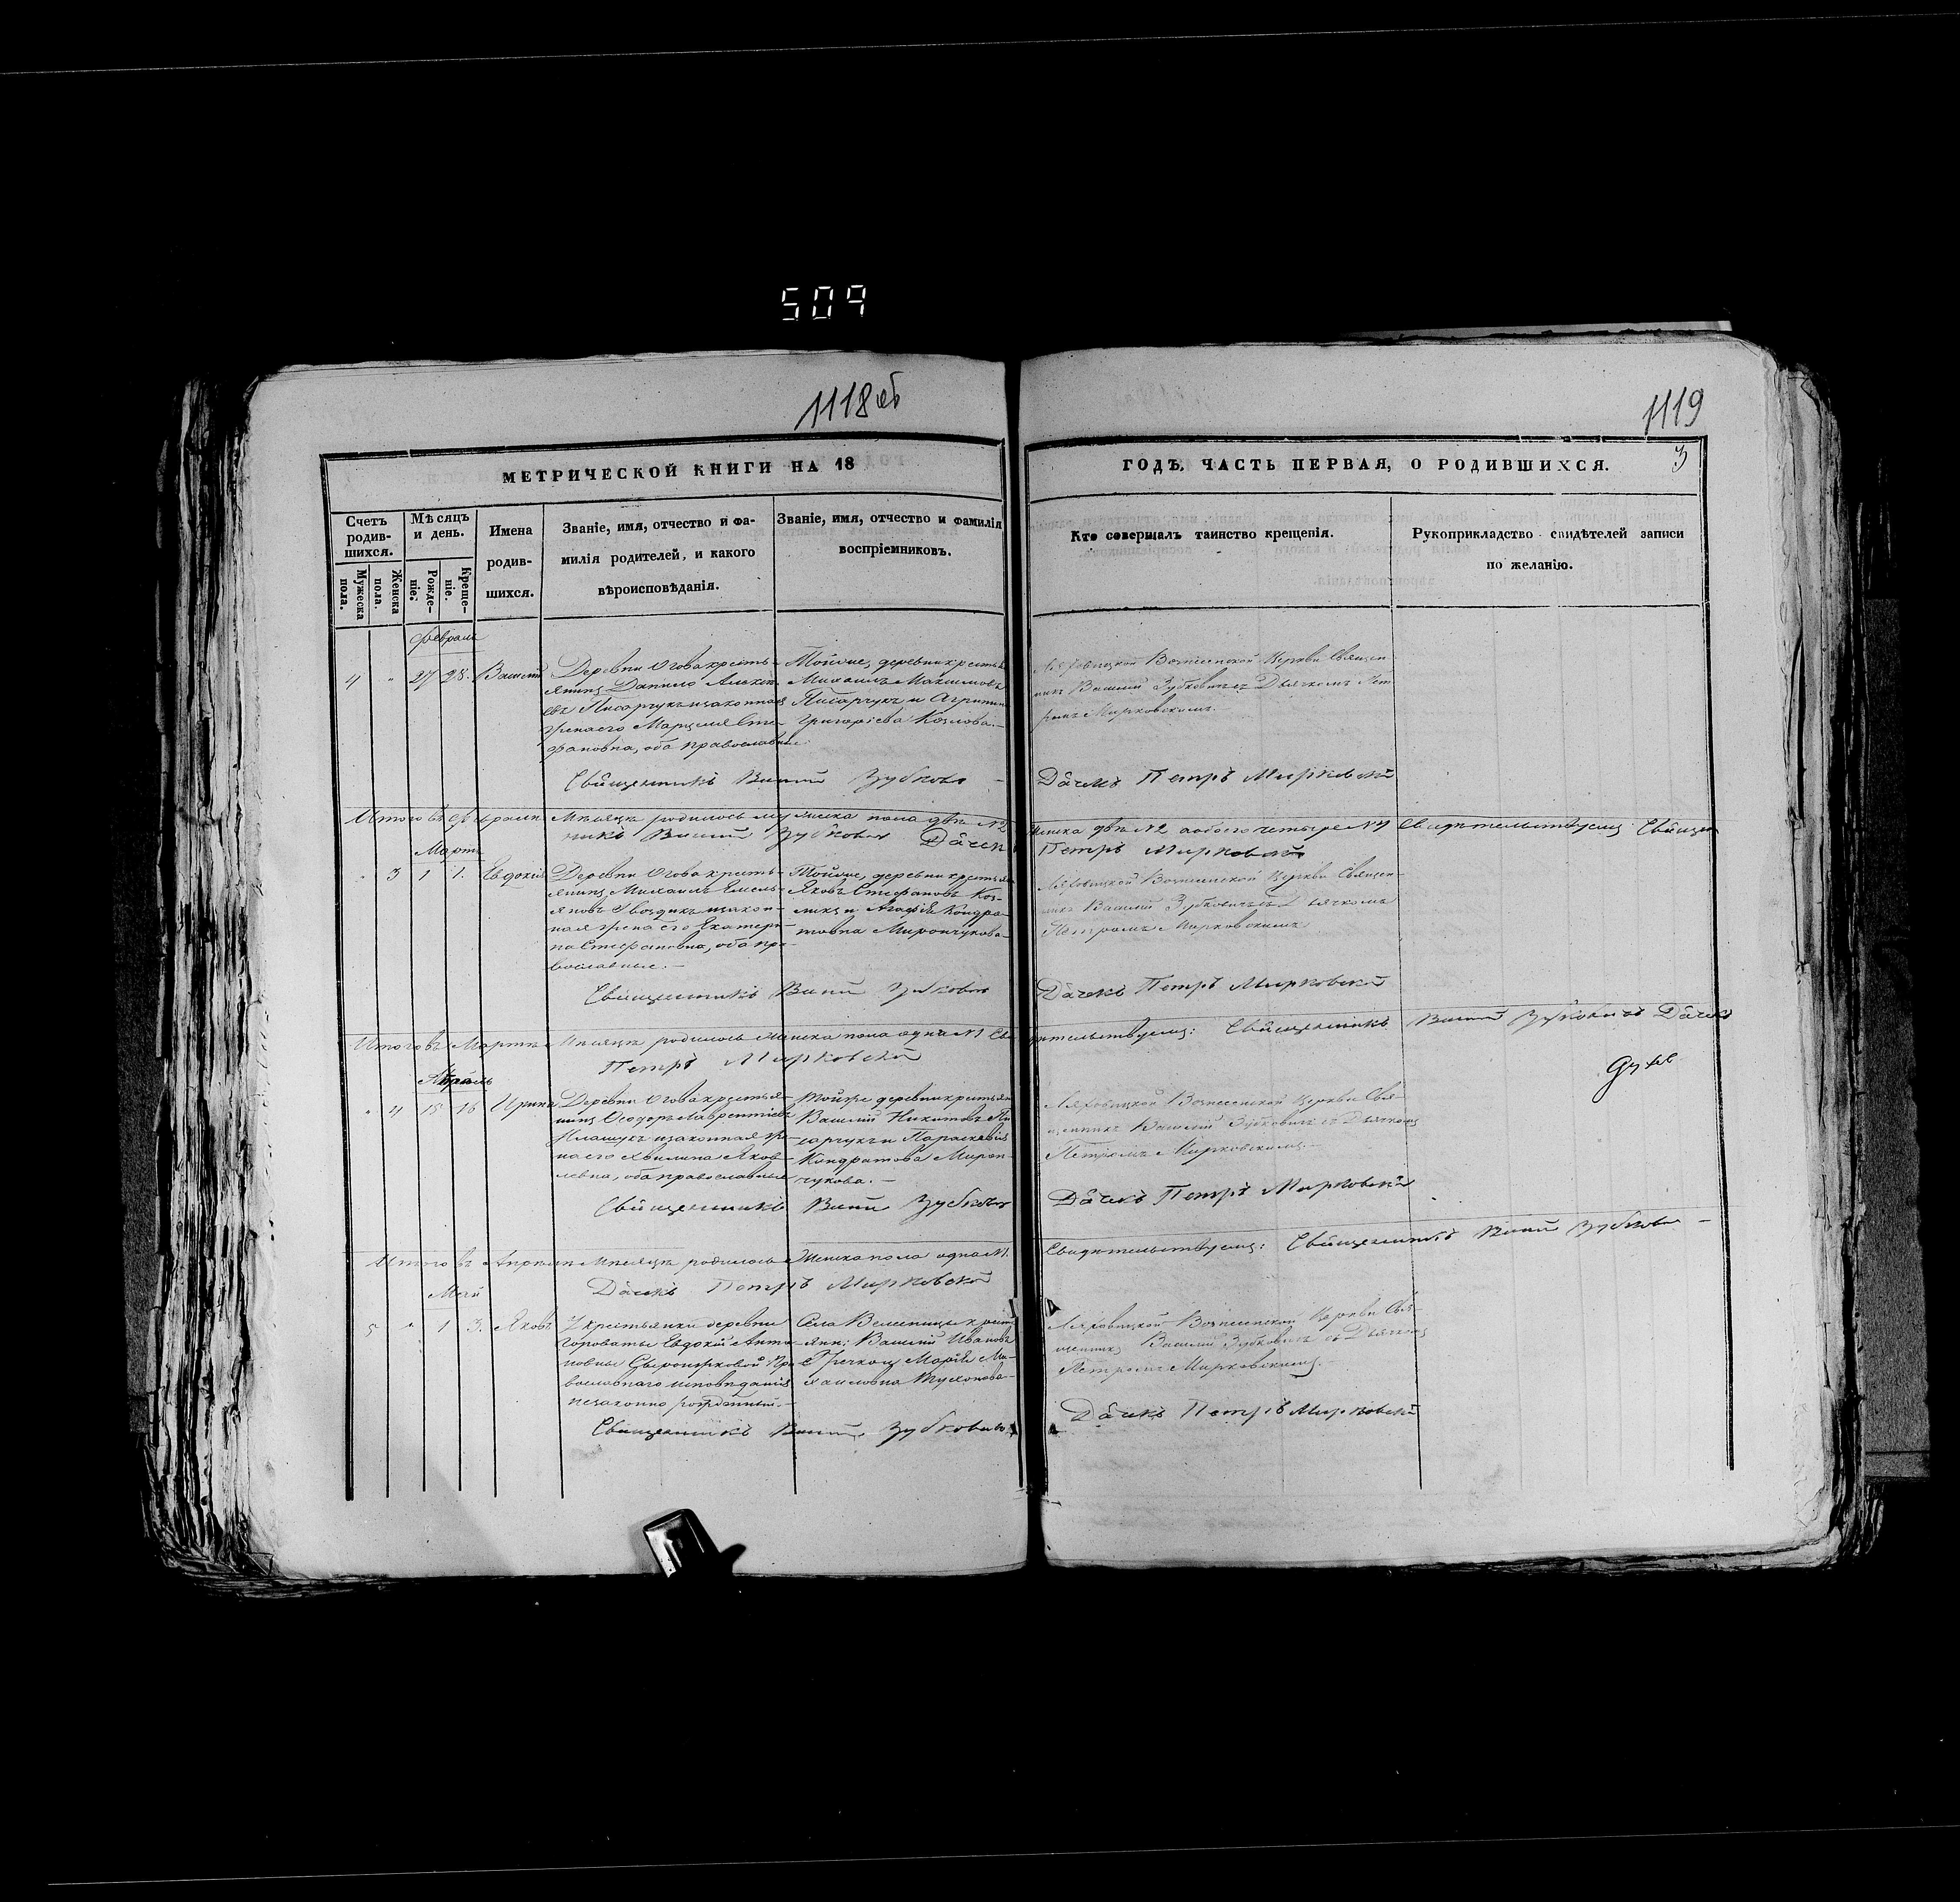 509
1118 об
1119
МЕТРИЧЕСКОЙ КНИГИ НА 18
ГОДЪ. ЧАСТЬ ПЕРВАЯ, О РОДИВШИХСЯ.
3
Счетъ родив-шихся.
Мужеска пола.
Женска пола.
Мѣсяцъ и день.
Рожде-ніе.
Креще-ніе.
Имена
родив-
шихся.
Званіе, имя, отчество и фа-
милія родителей, и какого
вѣроисповѣданія.
Званіе, имя, отчество и фамилія
воспріемниковъ.
Кто совершалъ таинство крещенія.
Рукоприкладство свидѣтелей записи
по желанію.
Февраль
4 " 27 28. Василій
Деревни Огова кресть-
янинъ Данило Алексѣ-
евъ Писарчукъ изаконная
жена его Марцеля Сте-
фановна, оба православные.
Тойже, деревни крестьяне
Михаилъ Максимовъ
Писарчукъ и Агрипина
Григоріева Козлова.
Ляховицкой Вознесенской Церкви Священ-
никъ Василій Зубковичъ съ Дьячкомъ Пет-
ромъ Мирковскимъ.
Священникъ Васий Зубкович
Дьячекъ Петръ Мирковскій
Итого въ Февралѣ Мѣсяцѣ родилось мужеска пола двѣ №2
женска двѣ №2 а обоего четыре №4 Свидѣтельствуемъ: Священ
никъ Васий Зубкович Дьячекъ
Петръ Мирковскій
Мартъ
" 3 1 1. Евдокія
Деревни Огова кресть-
янинъ Михаилъ Емель-
яновъ Гвоздикъ изакон-
ная жена его Екатери-
на Стефановна, оба пра-
вославные.
Тойже, деревни крестьяне
Яковъ Стефановъ Коз-
ликъ и Агафія Кондра-
товна Мирончукова
Ляховицкой Вознесенской Церкви Священ-
никъ Василій Зубковичъ съ Дьячкомъ
Петромъ Мирковскимъ
Священникъ Васий Зубкович
Дьячекъ Петръ Мирковскій
Итого въ Мартѣ Мѣсяцѣ родилось женска пола одна №1 Сви
дѣтельствуемъ: Священникъ Васий Зубковичъ Дьячекъ
Петръ Мирковскій
Апрѣль
" 4 15 16 Ирина
Деревни Огова крестья-
нинъ Ѳеодоръ Лаврентіевъ
изаконная же-
на его Яков-
левна, оба православные
Тойже деревни крестьяне
Василій Никитовъ Пи
сарчукъ и Параскевія
Кондратова Мирон-
чукова.
Ляховицкой Вознесенской Церкви Свя-
щенникъ Василій Зубковичъ съ Дьячкомъ
Петромъ Мирковскимъ
Священникъ Васий Зубкович
Дьячекъ Петръ Мирковскій
Итого въ Апрѣлѣ Мѣсяцѣ родилось женска пола одна №1.
Свидѣтельствуемъ: Священникъ Васий Зубкович
Дьячекъ Петръ Мирковскій
Май
5 " 1 3. Яковъ
У крестьянки деревни
Евдокіи Анто-
новны Пра
вославнаго исповѣданія
незаконно рожденный.
Села Велесницы крест
янн: Василій Ивановъ
Гречко и Марія Ми-
хаиловна
Ляховицкой Вознесенской Церкви Свя-
щенникъ Василій Зубковичъ съ Дьячкомъ
Петромъ Мирковскимъ.
Священникъ Васий Зубкович
Дьячекъ Петръ Мирковскій